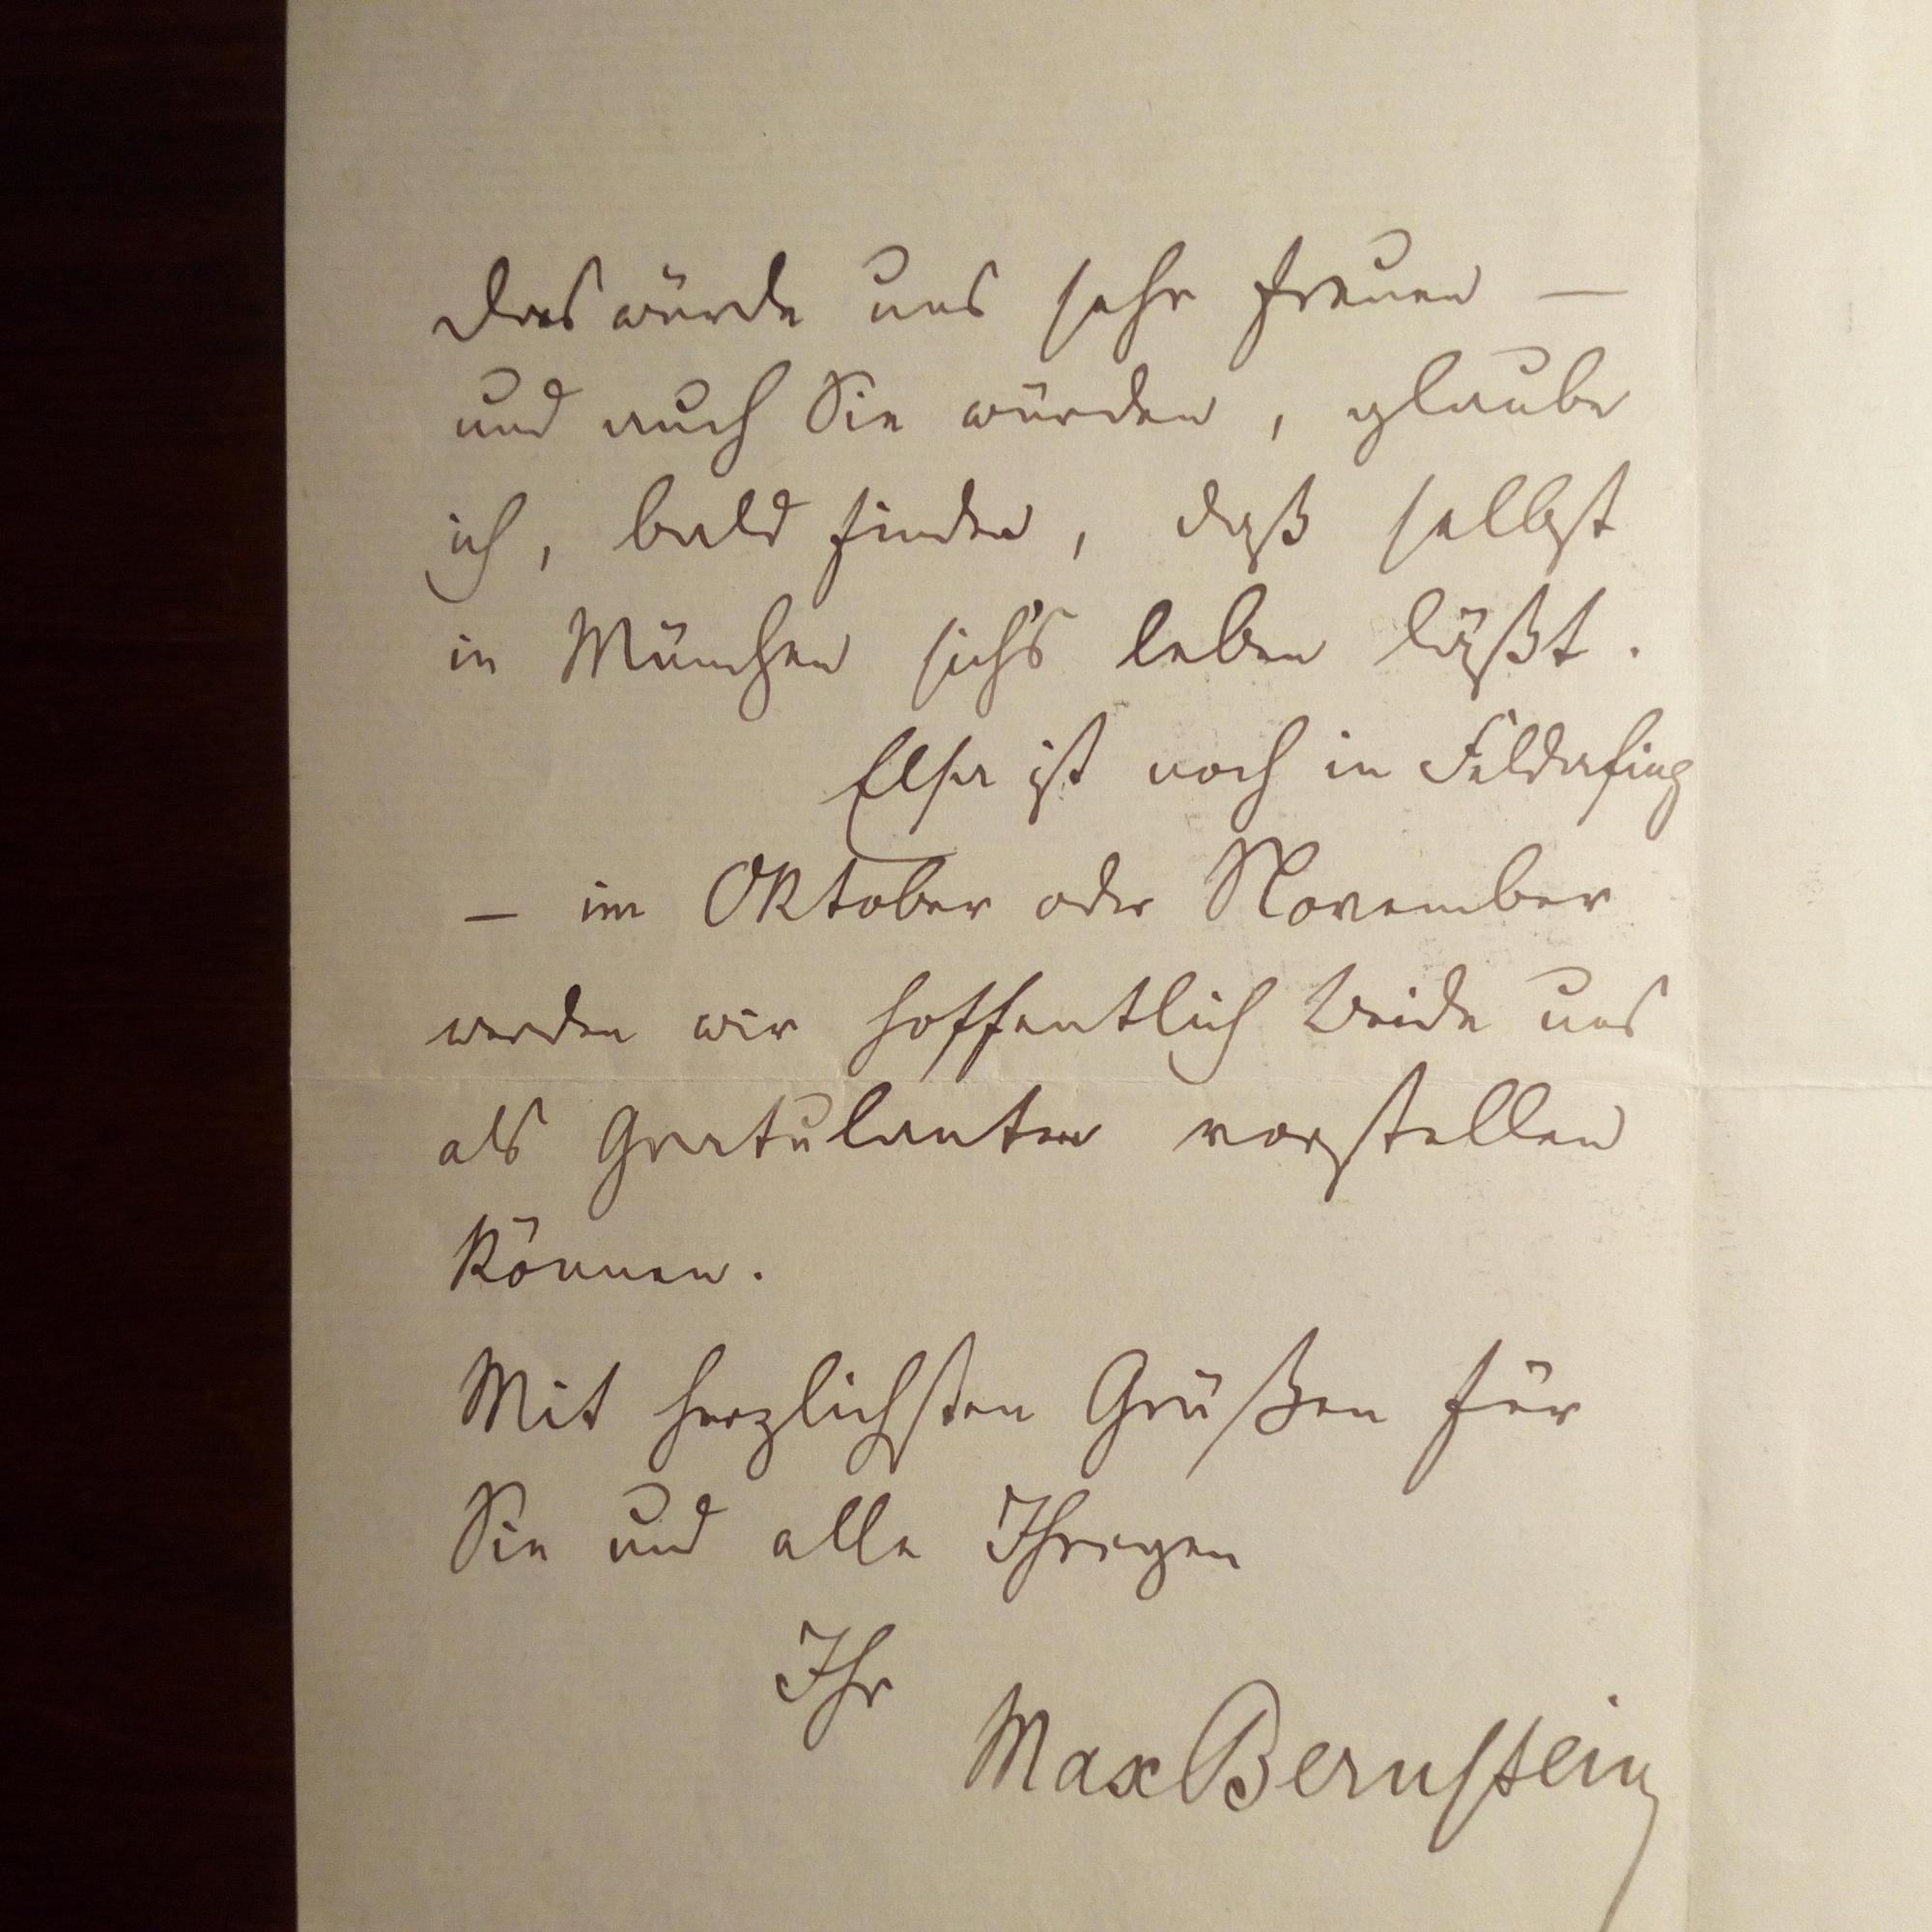 Das würde uns sehr freuen —
und auch Sie würden, glaube
ich, bald finden, daß selbst
in München sich's leben läßt.
Elsa ist noch in Feldafing
— im Oktober oder November
werden wir hoffentlich Beide uns
als Gratulanten vorstellen
können.
Mit herzlichsten Grüßen für
Sie und alle Ihrigen
Ihr
Max Bernstein